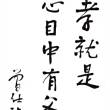 孝就是
心目中有父
曾仕